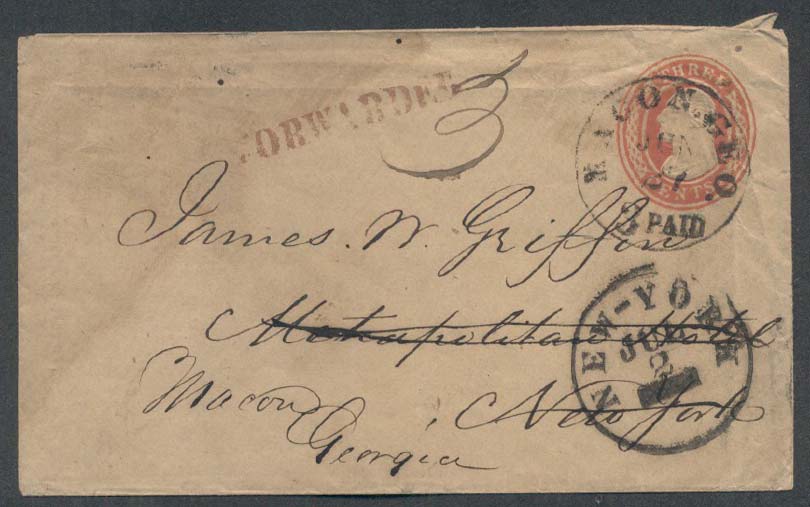 FORWARDED
3
THREE CENTS
MACON, GEO.
JUN
3 PAID
James. W. Griffin
Metropolitan Hotel
New York
Macon
Georgia
NEW-YORK
JUL
2